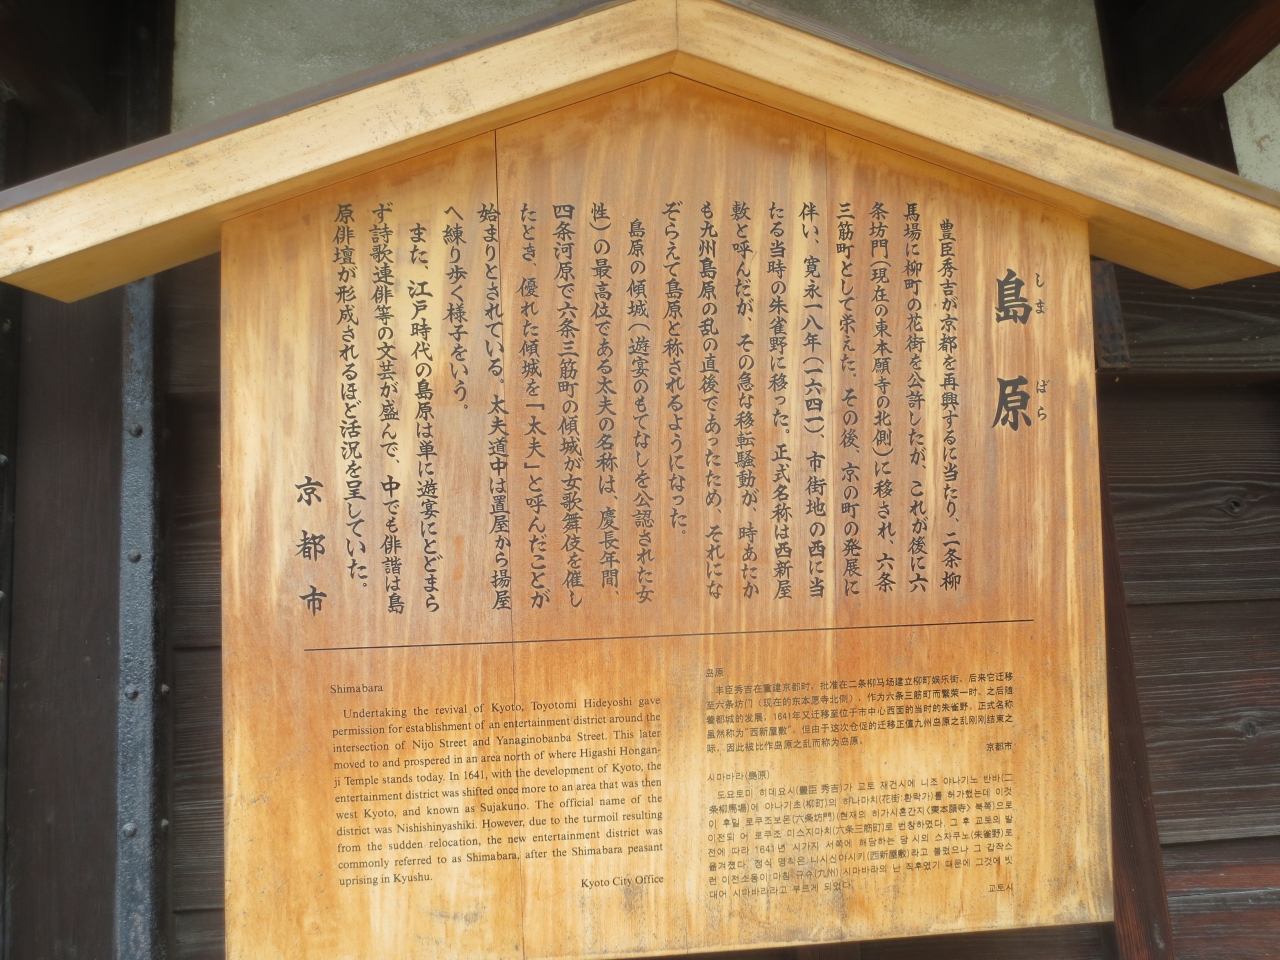 島原
しまばら
豊臣秀吉が京都を再興するに当たり、二条柳
馬場に柳町の花街を公許したが、これが後に六
条坊門（現在の東本願寺の北側）に移され、六条
三筋町として栄えた。その後、京の町の発展に
伴い、寛永一八年（一六四一）、市街地の西に当
たる当時の朱雀野に移った。正式名称は西新屋
敷と呼んだが、その急な移転騒動が、時あたか
も九州島原の乱の直後であったため、それにな
ぞらえて島原と称されるようになった。
島原の傾城（遊宴のもてなしを公認された女
性）の最高位である太夫の名称は、慶長年間、
四条河原で六条三筋町の傾城が女歌舞伎を催し
たとき、優れた傾城を「太夫」と呼んだことが
始まりとされている。太夫道中は置屋から揚屋
へ練り歩く様子をいう。
また、江戸時代の島原は単に遊宴にとどまら
ず詩歌連俳等の文芸が盛んで、中でも俳諧は島
原俳壇が形成されるほど活況を呈していた。
京都市
Shimabara
Undertaking the revival of Kyoto, Toyotomi Hideyoshi gave
permission for establishment of an entertainment district around the
intersection of Nijo Street and Yanaginobanba Street. This later
moved to and prospered in an area north of where Higashi Hongan-
ji Temple stands today. In 1641, with the development of Kyoto, the
entertainment district was shifted once more to an area that was then
west Kyoto, and known as Sujakuno. The official name of the
district was Nishishinyashiki. However, due to the turmoil resulting
from the sudden relocation, the new entertainment district was
commonly referred to as Shimabara, after the Shimabara peasant
uprising in Kyushu.
Kyoto City Office
岛原
丰臣秀吉在重建京都时，批准在二条柳马场建立柳町娱乐街，后来它迁移
至六条坊门（现在的东本愿寺北侧），作为六条三筋町而繁荣一时，之后随
着都城的发展，1641年又迁移至位于市中心西面的当时的朱雀野。正式名称
虽然称为“西新屋敷”，但由于这次仓促的迁移正值九州岛原之乱刚刚结束之
际，因此被比作岛原之乱而称为岛原。
京都市
시마바라(島原)
도요토미 히데요시(豊臣 秀吉)가 교토 재건시에 니조 야나기노 반바(二
条柳馬場)에 야나기초(柳町)의 하나마치(花街:환락가)를 허가했는데 이것
이 후일 로쿠조보몬(六条坊門)(현재의 히가시혼간지<東本願寺> 북쪽)으로
이전되 어 로쿠조 미스지마치(六条三筋町)로 번창하였다. 그 후 교토의 발
전에 따라 1641년 시가지 서쪽에 해당하는 당 시의 스자쿠노(朱雀野)로
옮겨졌다. 정식 명칭은 니시신야시키(西新屋敷)라고 불렀으나 그 갑작스
런 이전소동이 마침 규슈(九州) 시마바라의 난 직후였기 때문에 그것에 빗
대어 시마바라라고 부르게 되었다.
교토시